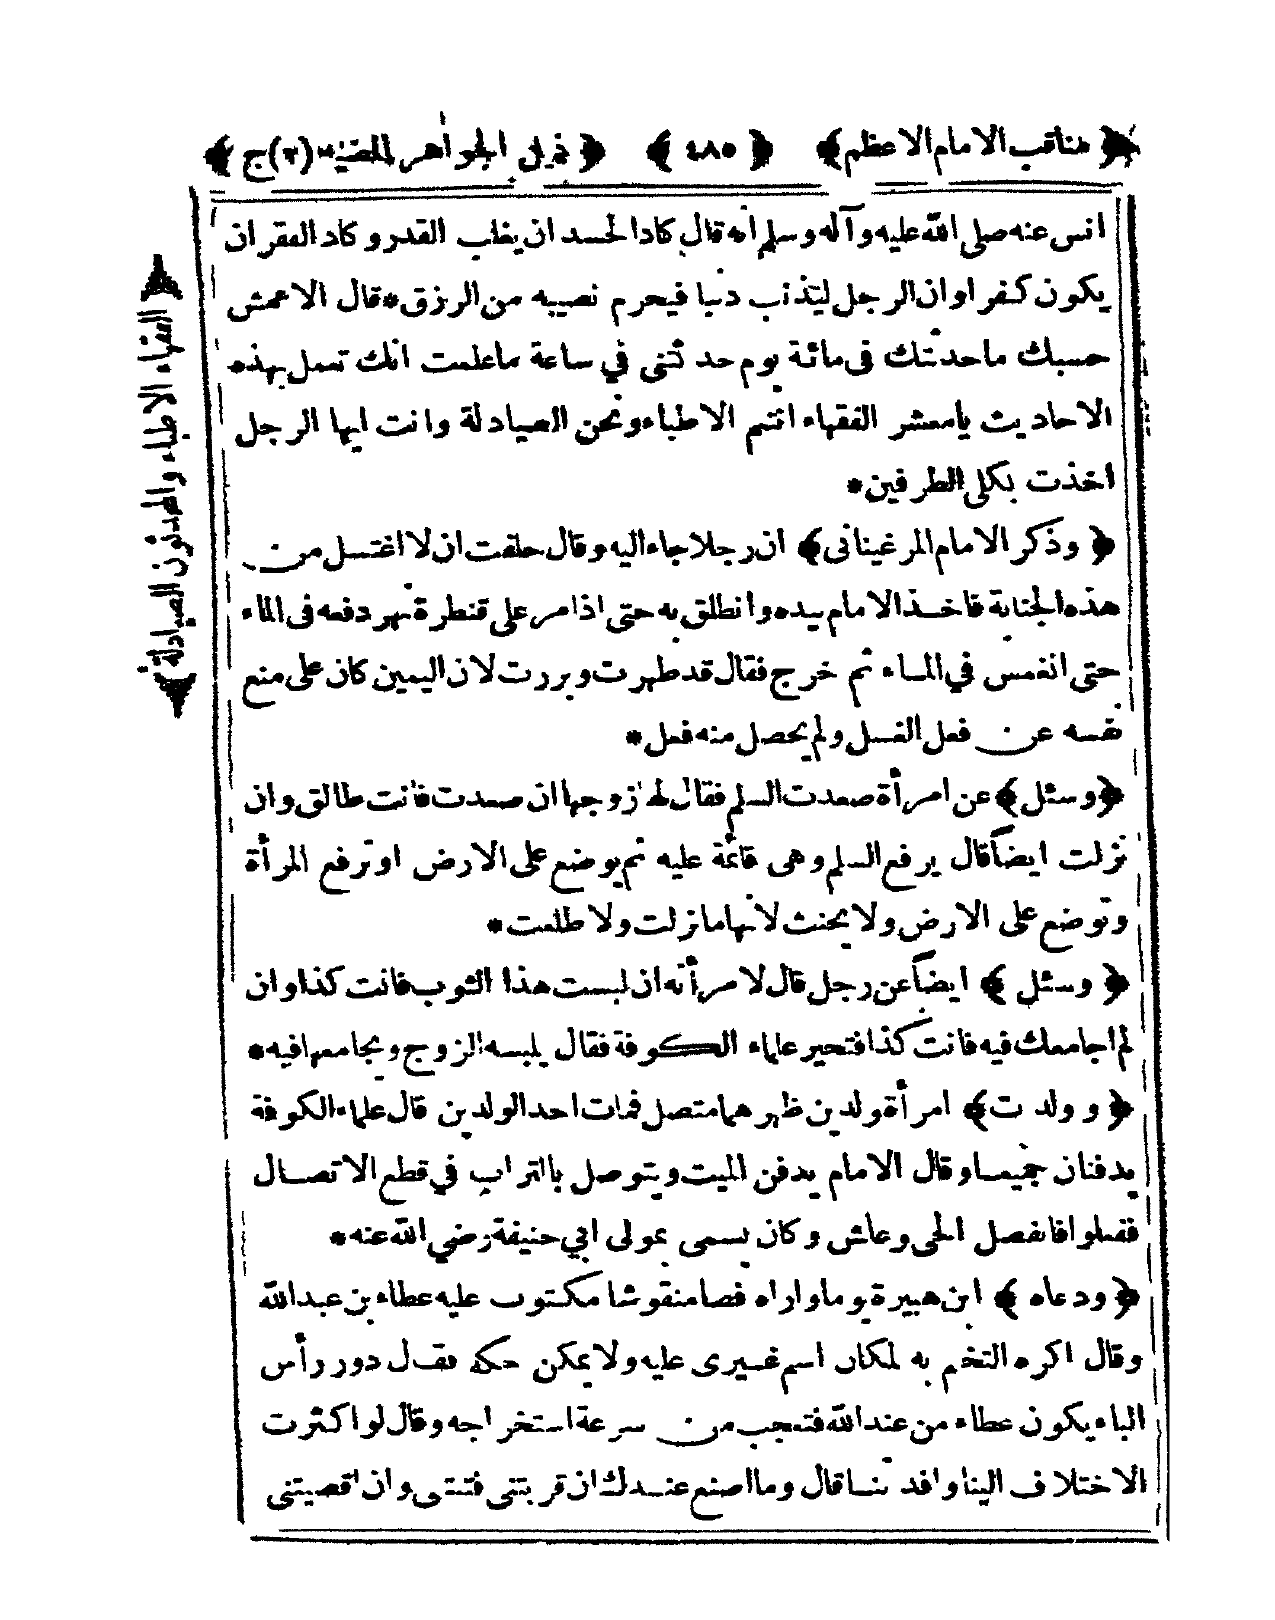 ﴿ مناقب الامام الاعظم ﴾ ﴿ ٤٨٥ ﴾ ﴿ ذيل الجواهر المضية (٢) ج ﴾
انس عنه صلى الله عليه وآله وسلم أنه قال كاد الحسد ان يغلب القدر وكاد الفقر ان
يكون كفرا وان الرجل ليتذنب دنبا فيحرم نصيبه من الرزق * قال الاعمش
حسبك ما حدثتك فى مائة يوم حدثنى في ساعة ما علمت انك تعمل بهذه
الاحاديث يامعشر الفقهاء انتم الاطباء ونحن الصيادلة وانت ايها الرجل
اخذت بكلى الطرفين *
﴿ وذكر الامام المرغينانى ﴾ ان رجلا جاء اليه وقال حلفت ان لا اغتسل من
هذه الجنابة فاخذ الامام بيده وانطلق به حتى اذا مر على قنطرة نهر دفعه فى الماء
حتى انغمس في الماء ثم خرج فقال قد طهرت وبررت لان اليمين كان على منع
نفسه عن فعل الغسل ولم يحصل منه فعل *
﴿ وسئل ﴾ عن امرأة صعدت السلم فقال لها زوجها ان صعدت فانت طالق وان
نزلت ايضاً قال يرفع السلم وهى قائمة عليه ثم يوضع على الارض او ترفع المرأة
وتوضع على الارض ولا يحنث لانها ما نزلت ولا طلعت *
﴿ وسئل ﴾ ايضاً عن رجل قال لامرأته ان لبست هذا الثوب فانت كذا وان
لم اجامعك فيه فانت كذا فتحير علماء الكوفة فقال يلبسه الزوج ويجامعها فيه *
﴿ وولدت ﴾ امرأة ولدين ظهرهما متصل فمات احد الولدين قال علماء الكوفة
يدفنان جميعا وقال الامام يدفن الميت ويتوصل بالتراب في قطع الاتصال
ففعلوا فانفصل الحى وعاش وكان يسمى بمولى ابي حنيفة رضي الله عنه *
﴿ ودعاه ﴾ ابن هبيرة يوما واراه فصا منقوشا مكتوب عليه عطاء بن عبد الله
وقال اكره التختم به لمكان اسم غيرى عليه ولا يمكن حكه فقال دور رأس
الباء يكون عطاء من عند الله فتعجب من سرعة استخراجه وقال لو اكثرت
الاختلاف الينا وافدتنا قال وما اصنع عندك ان قربتنى فتنتى وان اقصيتنى
﴿ الفقهاء الاطباء والمحدثون الصيادلة ﴾